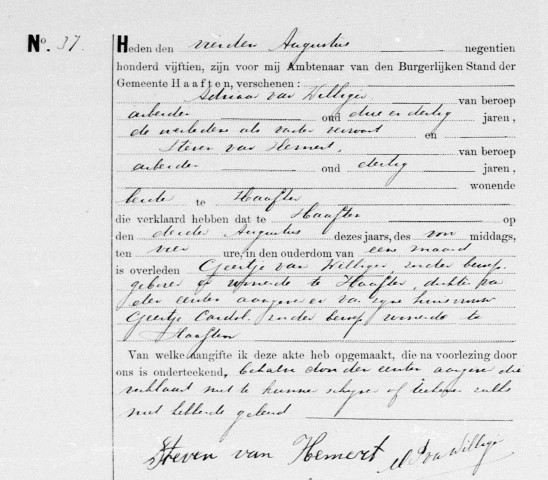 No. 37.
Heden den vierden Augustus negentien
honderd vijftien, zijn voor mij Ambtenaar van den Burgerlijken Stand der
Gemeente Haaften, verschenen:
Adriaan van Willigen van beroep
arbeider oud drie en dertig jaren,
de overledene als vader en
Steven van Hemert, van beroep
arbeider oud dertig jaren,
wonende
beide te Haaften
die verklaard hebben dat te Haaften op
den derde Augustus dezes jaars, des voor middags,
ten vier ure, in den ouderdom van eene maand
is overleden Geertje van Willigen, zonder beroep
geboren en wonende te Haaften, dochter van
den eersten aangever en van zijne huisvrouw
Geertje zonder beroep wonende te
Haaften
Van welke aangifte ik deze akte heb opgemaakt, die na voorlezing door
ons is onderteekend, behalve door den eersten aangever die
verklaart niet te kunnen schrijven of teekenen zulks
niet hebbende geleerd
Steven van Hemert